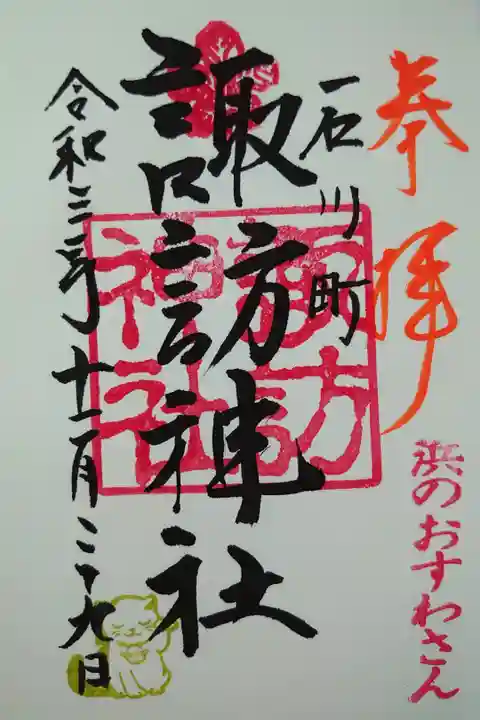 奉拝
浜のおすわさん
石川町
諏訪神社
諏訪
神社
令和三年十一月二十九日